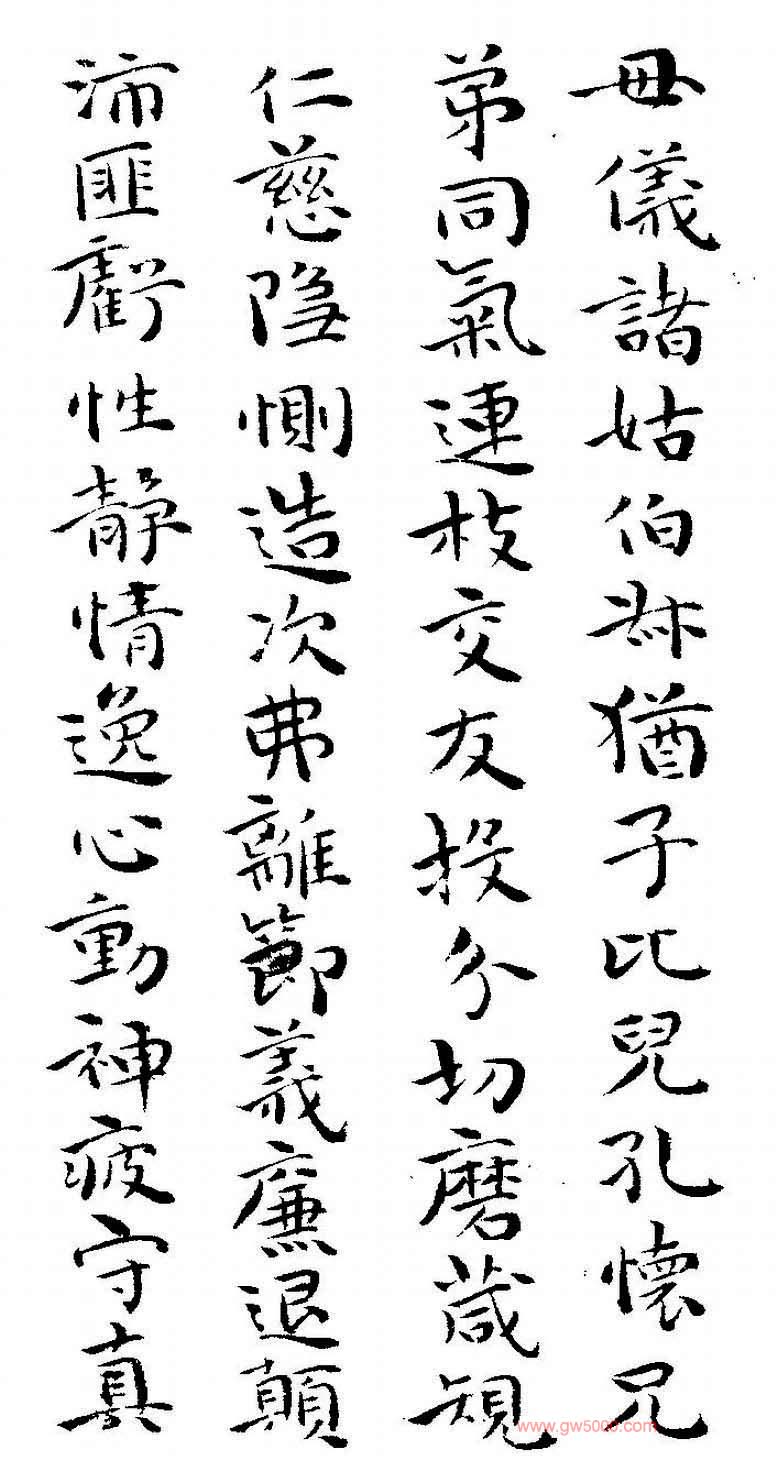 母儀諸姑伯叔猶子比兒孔懷兄
弟同氣連枝交友投分切磨葴規
仁慈隐惻造次弗離節義廉退顛
沛匪虧性靜情逸心動神疲守真
www.gw5000.com